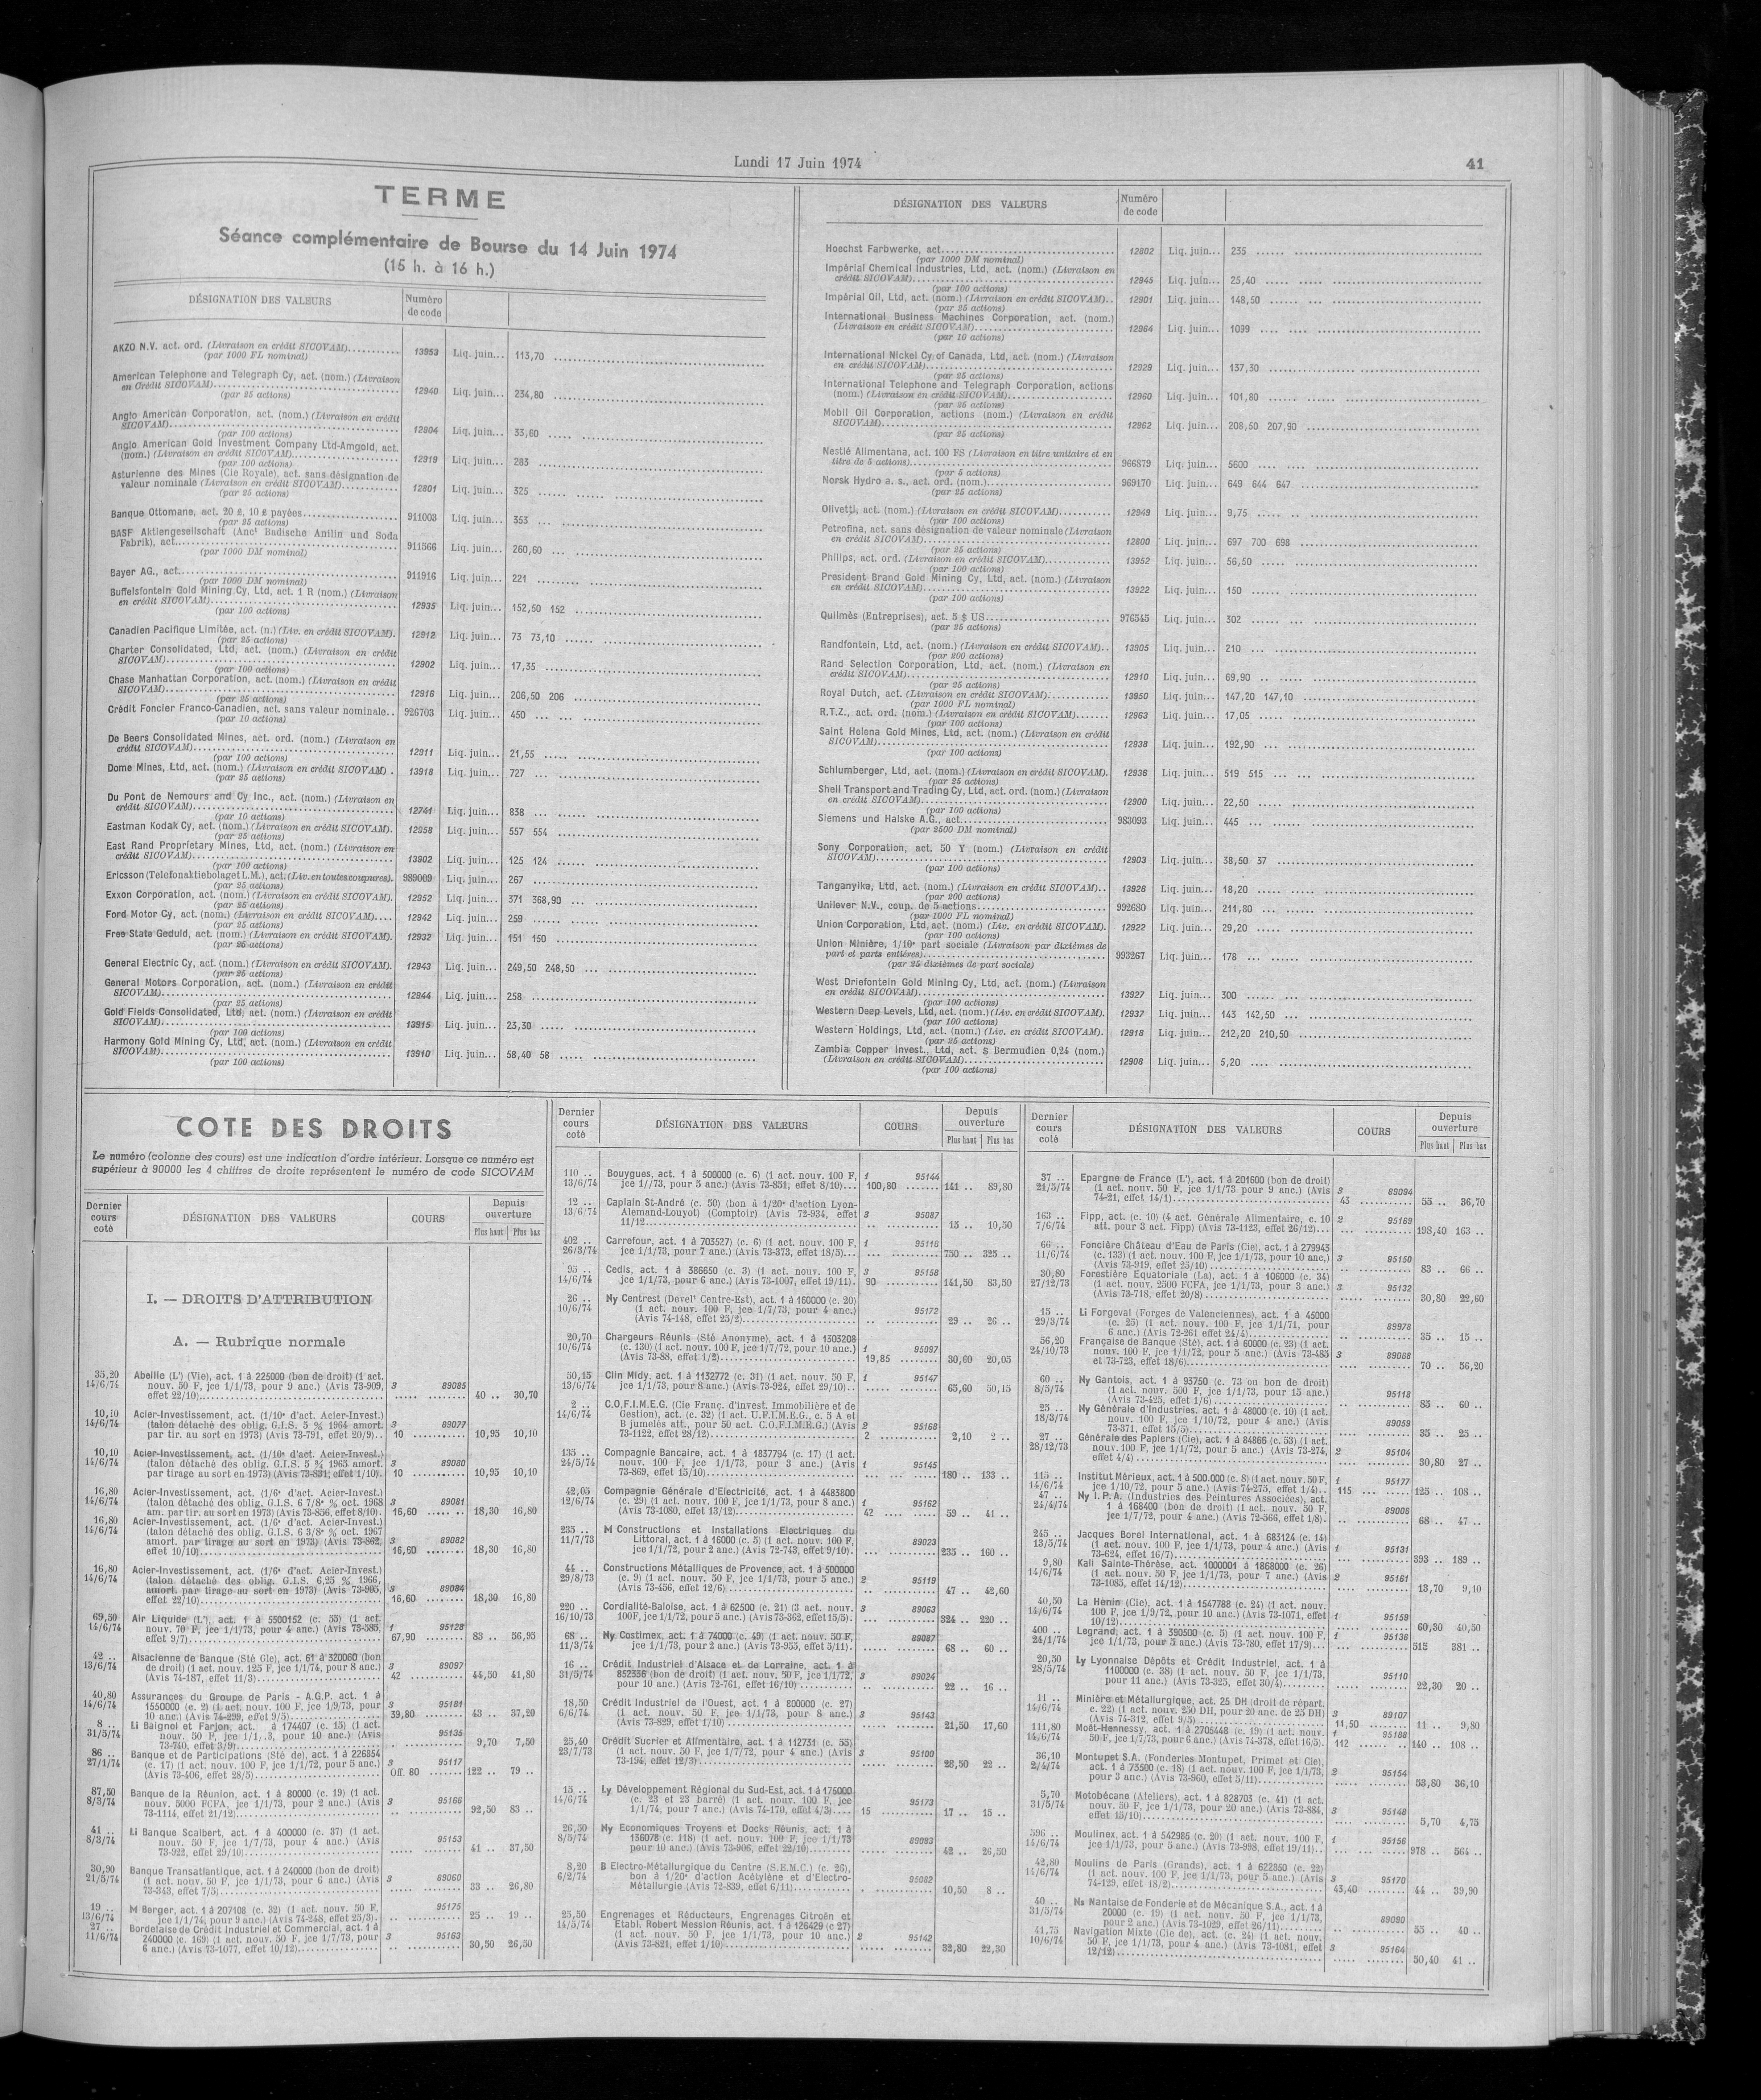 Lundi 17 Juin 1974
41
TERME
Séance complémentaire de Bourse du 14 Juin 1974
(15 h. à 16 h.)
DÉSIGNATION DES VALEURS
Numéro
de code
AKZO N.V. act. ord. (Livraison en crédit SICOVAM) 13953 Liq. juin... 113,70
(par 1000 FL nominal)
American Telephone and Telegraph Cy, act. (nom.) (Livraison
en Crédit SICOVAM) 12940 Liq. juin... 234,80
(par 25 actions)
Anglo American Corporation, act. (nom.) (Livraison en crédit
SICOVAM) 12904 Liq. juin... 33,60
(par 100 actions)
Anglo American Gold Investment Company Ltd-Amgold, act.
(nom.) (Livraison en crédit SICOVAM) 12919 Liq. juin... 283
(par 100 actions)
Asturienne des Mines (Cie Royale), act. sans désignation de
valeur nominale (Livraison en crédit SICOVAM) 12801 Liq. juin... 325
(par 25 actions)
Banque Ottomane, act. 20 £, 10 £ payées 911003 Liq. juin... 353
(par 25 actions)
BASF Aktiengesellschaft (Anct Badische Anilin und Soda
Fabrik), act. 911566 Liq. juin... 260,60
(par 1000 DM nominal)
Bayer AG., act. 911916 Liq. juin... 221
(par 1000 DM nominal)
Buffelsfontein Gold Mining Cy, Ltd, act. 1 R (nom.) (Livraison
en crédit SICOVAM) 12935 Liq. juin... 152,50 152
(par 100 actions)
Canadien Pacifique Limitée, act. (n.) (Liv. en crédit SICOVAM). 12912 Liq. juin... 73 73,10
(par 25 actions)
Charter Consolidated, Ltd, act. (nom.) (Livraison en crédit
SICOVAM) 12902 Liq. juin... 17,35
(par 100 actions)
Chase Manhattan Corporation, act. (nom.) (Livraison en crédit
SICOVAM) 12916 Liq. juin... 206,50 206
(par 25 actions)
Crédit Foncier Franco-Canadien, act. sans valeur nominale.. 926703 Liq. juin... 450
(par 10 actions)
De Beers Consolidated Mines, act. ord. (nom.) (Livraison en
crédit SICOVAM) 12911 Liq. juin... 21,55
(par 100 actions)
Dome Mines, Ltd, act. (nom.) (Livraison en crédit SICOVAM) . 13918 Liq. juin... 727
(par 25 actions)
Du Pont de Nemours and Cy Inc., act. (nom.) (Livraison en
crédit SICOVAM) 12741 Liq. juin... 838
(par 10 actions)
Eastman Kodak Cy, act. (nom.) (Livraison en crédit SICOVAM). 12958 Liq. juin... 557 554
(par 25 actions)
East Rand Proprietary Mines, Ltd, act. (nom.) (Livraison en
crédit SICOVAM) 13902 Liq. juin... 125 124
(par 100 actions)
Ericsson (Telefonaktiebolaget L.M.), act. (Liv. en toutes coupures). 989009 Liq. juin... 267
(par 25 actions)
Exxon Corporation, act. (nom.) (Livraison en crédit SICOVAM). 12952 Liq. juin... 371 368,90
(par 25 actions)
Ford Motor Cy, act. (nom.) (Livraison en crédit SICOVAM).... 12942 Liq. juin... 259
(par 25 actions)
Free State Geduld, act. (nom.) (Livraison en crédit SICOVAM). 12932 Liq. juin... 151 150
(par 25 actions)
General Electric Cy, act. (nom.) (Livraison en crédit SICOVAM). 12943 Liq. juin... 249,50 248,50
(par 25 actions)
General Motors Corporation, act. (nom.) (Livraison en crédit
SICOVAM) 12944 Liq. juin... 258
(par 25 actions)
Gold Fields Consolidated, Ltd, act. (nom.) (Livraison en crédit
SICOVAM) 13915 Liq. juin... 23,30
(par 100 actions)
Harmony Gold Mining Cy, Ltd, act. (nom.) (Livraison en crédit
SICOVAM) 13910 Liq. juin... 58,40 58
(par 100 actions)
DÉSIGNATION DES VALEURS
Numéro
de code
Hoechst Farbwerke, act. 12802 Liq. juin... 235
(par 1000 DM nominal)
Impérial Chemical Industries, Ltd, act. (nom.) (Livraison en
crédit SICOVAM) 12945 Liq. juin... 25,40
(par 100 actions)
Impérial Oil, Ltd, act. (nom.) (Livraison en crédit SICOVAM).. 12901 Liq. juin... 148,50
(par 25 actions)
International Business Machines Corporation, act. (nom.)
(Livraison en crédit SICOVAM) 12964 Liq. juin... 1099
(par 10 actions)
International Nickel Cy of Canada, Ltd, act. (nom.) (Livraison
en crédit SICOVAM) 12929 Liq. juin... 137,30
(par 25 actions)
International Telephone and Telegraph Corporation, actions
(nom.) (Livraison en crédit SICOVAM) 12960 Liq. juin... 101,80
(par 25 actions)
Mobil Oil Corporation, actions (nom.) (Livraison en crédit
SICOVAM) 12962 Liq. juin... 208,50 207,90
(par 25 actions)
Nestlé Alimentana, act. 100 FS (Livraison en titre unitaire et en
titre de 5 actions) 966879 Liq. juin... 5600
(par 5 actions)
Norsk Hydro a. s., act. ord. (nom.) 969170 Liq. juin... 649 644 647
(par 25 actions)
Olivetti, act. (nom.) (Livraison en crédit SICOVAM) 12949 Liq. juin... 9,75
(par 100 actions)
Petrofina, act. sans désignation de valeur nominale (Livraison
en crédit SICOVAM) 12800 Liq. juin... 697 700 698
(par 25 actions)
Philips, act. ord. (Livraison en crédit SICOVAM) 13952 Liq. juin... 56,50
(par 100 actions)
President Brand Gold Mining Cy, Ltd, act. (nom.) (Livraison
en crédit SICOVAM) 13922 Liq. juin... 150
(par 100 actions)
Quilmès (Entreprises), act. 5 $ US 976545 Liq. juin... 302
(par 25 actions)
Randfontein, Ltd, act. (nom.) (Livraison en crédit SICOVAM).. 13905 Liq. juin... 210
(par 200 actions)
Rand Selection Corporation, Ltd, act. (nom.) (Livraison en
crédit SICOVAM) 12910 Liq. juin... 69,90
(par 25 actions)
Royal Dutch, act. (Livraison en crédit SICOVAM) 13950 Liq. juin... 147,20 147,10
(par 1000 FL nominal)
R.T.Z., act. ord. (nom.) (Livraison en crédit SICOVAM) 12963 Liq. juin... 17,05
(par 100 actions)
Saint Helena Gold Mines, Ltd, act. (nom.) (Livraison en crédit
SICOVAM) 12938 Liq. juin... 192,90
(par 100 actions)
Schlumberger, Ltd, act. (nom.) (Livraison en crédit SICOVAM). 12936 Liq. juin... 519 515
(par 25 actions)
Shell Transport and Trading Cy, Ltd, act. ord. (nom.) (Livraison
en crédit SICOVAM) 12900 Liq. juin... 22,50
(par 100 actions)
Siemens und Halske A.G., act. 983093 Liq. juin... 445
(par 2500 DM nominal)
Sony Corporation, act. 50 Y (nom.) (Livraison en crédit
SICOVAM) 12903 Liq. juin... 38,50 37
(par 100 actions)
Tanganyika, Ltd, act. (nom.) (Livraison en crédit SICOVAM).. 13926 Liq. juin... 18,20
(par 200 actions)
Unilever N.V., coup. de 5 actions 992680 Liq. juin... 211,80
(par 1000 FL nominal)
Union Corporation, Ltd, act. (nom.) (Liv. en crédit SICOVAM). 12922 Liq. juin... 29,20
(par 100 actions)
Union Minière, 1/10e part sociale (Livraison par dixièmes de
part et parts entières) 993267 Liq. juin... 178
(par 25 dixièmes de part sociale)
West Driefontein Gold Mining Cy, Ltd, act. (nom.) (Livraison
en crédit SICOVAM) 13927 Liq. juin... 300
(par 100 actions)
Western Deep Levels, Ltd, act. (nom.) (Liv. en crédit SICOVAM). 12937 Liq. juin... 143 142,50
(par 100 actions)
Western Holdings, Ltd, act. (nom.) (Liv. en crédit SICOVAM). 12918 Liq. juin... 212,20 210,50
(par 25 actions)
Zambia Copper Invest., Ltd, act. $ Bermudien 0,24 (nom.)
(Livraison en crédit SICOVAM) 12908 Liq. juin... 5,20
(par 100 actions)
COTE DES DROITS
Le numéro (colonne des cours) est une indication d'ordre intérieur. Lorsque ce numéro est
supérieur à 90000 les 4 chiffres de droite représentent le numéro de code SICOVAM
Dernier cours coté
DÉSIGNATION DES VALEURS
COURS
Depuis ouverture
Plus haut Plus bas
I. — DROITS D'ATTRIBUTION
A. — Rubrique normale
35,20 Abeille (L') (Vie), act. 1 à 225000 (bon de droit) (1 act.
14/6/74 nouv. 50 F, jce 1/1/73, pour 9 anc.) (Avis 73-909, 3 89085
effet 22/10) 40 .. 30,70
10,10 Acier-Investissement, act. (1/10e d'act. Acier-Invest.)
14/6/74 (talon détaché des oblig. G.I.S. 5 % 1964 amort. 3 89077
par tir. au sort en 1973) (Avis 73-791, effet 20/9).. 10 10,95 10,10
10,10 Acier-Investissement, act. (1/10e d'act. Acier-Invest.)
14/6/74 (talon détaché des oblig. G.I.S. 5 % 1965 amort. 3 89080
par tirage au sort en 1973) (Avis 73-831, effet 1/10). 10 10,95 10,10
16,80 Acier-Investissement, act. (1/6e d'act. Acier-Invest.)
14/6/74 (talon détaché des oblig. G.I.S. 6 7/8e % oct. 1968 3 89081
am. par tir. au sort en 1973) (Avis 73-856, effet 8/10). 16,60 18,30 16,80
16,80 Acier-Investissement, act. (1/6e d'act. Acier-Invest.)
14/6/74 (talon détaché des oblig. G.I.S. 6 3/8e % oct. 1967
amort. par tirage au sort en 1973) (Avis 73-862, 3 89082
effet 10/10) 16,60 18,30 16,80
16,80 Acier-Investissement, act. (1/6e d'act. Acier-Invest.)
14/6/74 (talon détaché des oblig. G.I.S. 6,25 % 1966,
amort. par tirage au sort en 1973) (Avis 73-905, 3 89084
effet 22/10) 16,60 18,30 16,80
69,50 Air Liquide (L'), act. 1 à 5500152 (c. 55) (1 act.
14/6/74 nouv. 70 F, jce 1/1/73, pour 4 anc.) (Avis 73-585, 1 95128
effet 9/7) 67,90 83 .. 56,95
42 .. Alsacienne de Banque (Sté Gle), act. 61 à 320060 (bon
13/6/74 de droit) (1 act. nouv. 125 F, jce 1/1/74, pour 8 anc.) 3 89097
(Avis 74-187, effet 11/3) 42 44,50 41,80
40,80 Assurances du Groupe de Paris - A.G.P. act. 1 à
14/6/74 1550000 (c. 2) (1 act. nouv. 100 F, jce 1/9/73, pour 3 95181
10 anc.) (Avis 74-299, effet 9/5) 39,80 43 .. 37,20
8 .. Li Baignol et Farjon, act. à 174407 (c. 15) (1 act.
31/5/74 nouv. 50 F, jce 1/1/.3, pour 10 anc.) (Avis 95135
73-740, effet 3/9) 9,70 7,50
86 .. Banque et Participations (Sté de), act. 1 à 226854
27/1/74 (c. 17) (1 act. nouv. 100 F, jce 1/1/72, pour 5 anc.) 3 95117
(Avis 73-406, effet 28/5) Off. 80 122 .. 79 ..
87,50 Banque de la Réunion, act. 1 à 80000 (c. 19) (1 act.
8/3/74 nouv. 5000 FCFA, jce 1/1/73, pour 2 anc.) (Avis 3 95166
73-1114, effet 21/12) 92,50 83 ..
41 .. Li Banque Scalbert, act. 1 à 400000 (c. 37) (1 act.
8/3/74 nouv. 50 F, jce 1/7/73, pour 4 anc.) (Avis 95153
73-922, effet 29/10) 41 .. 37,50
30,90 Banque Transatlantique, act. 1 à 240000 (bon de droit)
21/5/74 (1 act. nouv. 50 F, jce 1/1/73, pour 6 anc.) (Avis 3 89060
73-343, effet 7/5) 33 .. 26,80
19 .. M Berger, act. 1 à 207108 (c. 32) (1 act. nouv. 50 F, 95175
13/6/74 jce 1/1/74, pour 9 anc.) (Avis 74-248, effet 25/3). 25 .. 19 ..
27 .. Bordelaise de Crédit Industriel et Commercial, act. 1 à
11/6/74 240000 (c. 169) (1 act. nouv. 50 F, jce 1/7/73, pour 3 95163
6 anc.) (Avis 73-1077, effet 10/12) 30,50 26,50
Dernier cours coté
DÉSIGNATION DES VALEURS
COURS
Depuis ouverture
Plus haut Plus bas
110 .. Bouygues, act. 1 à 500000 (c. 6) (1 act. nouv. 100 F, 1 95144
13/6/74 jce 1//1/73, pour 5 anc.) (Avis 73-851, effet 8/10)... 100,80 141 .. 89,80
12 .. Caplain St-André (c. 50) (bon à 1/20e d'action Lyon-
13/6/74 Alemand-Louyot) (Comptoir) (Avis 72-934, effet 3 95087
11/12 15 .. 10,50
402 .. Carrefour, act. 1 à 703527) (c. 6) (1 act. nouv. 100 F, 1 95116
26/3/74 jce 1/1/73, pour 7 anc.) (Avis 73-373, effet 18/5)... 750 .. 325 ..
95 .. Cedis, act. 1 à 386650 (c. 3) (1 act. nouv. 100 F, 3 95158
14/6/74 jce 1/1/73, pour 6 anc.) (Avis 73-1007, effet 19/11). 90 141,50 83,50
26 .. Ny Centrest (Develt Centre-Est), act. 1 à 160000 (c. 20)
10/6/74 (1 act. nouv. 100 F, jce 1/7/73, pour 4 anc.) 95172
(Avis 74-148, effet 25/2) 29 .. 26 ..
20,70 Chargeurs Réunis (Sté Anonyme), act. 1 à 1303208
10/6/74 (c. 130) (1 act. nouv. 100 F, jce 1/7/72, pour 10 anc.) 1 95097
(Avis 73-88, effet 1/2) 19,85 30,60 20,05
50,15 Clin Midy, act. 1 à 1132772 (c. 31) (1 act. nouv. 50 F, 1 95147
13/6/74 jce 1/1/73, pour 8 anc.) (Avis 73-924, effet 29/10).. 65,60 50,15
2 .. C.O.F.I.M.E.G. (Cie Franç. d'invest. Immobilière et de
14/6/74 Gestion), act. (c. 32) (1 act. U.F.I.M.E.G., c. 5 A et
B jumelés att., pour 50 act. C.O.F.I.M.E.G.) (Avis 2 95168
73-1122, effet 28/12) 2 2,10 2 ..
135 .. Compagnie Bancaire, act. 1 à 1837794 (c. 17) (1 act.
24/5/74 nouv. 100 F, jce 1/1/73, pour 3 anc.) (Avis 1 95145
73-869, effet 15/10) 180 .. 133 ..
42,05 Compagnie Générale d'Electricité, act. 1 à 4483800
12/6/74 (c. 29) (1 act. nouv. 100 F, jce 1/1/73, pour 8 anc.) 1 95162
(Avis 73-1080, effet 13/12) 42 59 .. 41 ..
235 .. M Constructions et Installations Electriques du
11/7/73 Littoral, act. 1 à 16000 (c. 5) (1 act. nouv. 100 F, 89023
jce 1/1/72, pour 2 anc.) (Avis 72-743, effet 9/10). 235 .. 160 ..
44 .. Constructions Métalliques de Provence, act. 1 à 500000
29/8/73 (c. 9) (1 act. nouv. 50 F, jce 1/1/73, pour 5 anc.) 2 95119
(Avis 73-456, effet 12/6) 47 .. 42,60
220 .. Cordialité-Baloise, act. 1 à 62500 (c. 21) (3 act. nouv. 3 89063
16/10/73 100F, jce 1/1/72, pour 5 anc.) (Avis 73-362, effet 15/5). 324 .. 220 ..
68 .. Ny Costimex, act. 1 à 74000 (c. 49) (1 act. nouv. 50 F, 89087
11/3/74 jce 1/1/73, pour 2 anc.) (Avis 73-955, effet 5/11). 68 .. 60 ..
16 .. Crédit Industriel d'Alsace et de Lorraine, act. 1 à
31/5/74 852336 (bon de droit) (1 act. nouv. 50 F, jce 1/1/72, 3 89024
pour 10 anc.) (Avis 72-761, effet 16/10) 22 .. 16 ..
18,50 Crédit Industriel de l'Ouest, act. 1 à 800000 (c. 27)
6/6/74 (1 act. nouv. 50 F, jce 1/1/73, pour 8 anc.) 3 95143
(Avis 73-829, effet 1/10) 21,50 17,60
25,40 Crédit Sucrier et Alimentaire, act. 1 à 112731 (c. 55)
23/7/73 (1 act. nouv. 50 F, jce 1/7/72, pour 4 anc.) (Avis 3 95100
73-194, effet 12/3) 28,50 22 ..
15 .. Ly Développement Régional du Sud-Est, act. 1 à 175000
14/6/74 (c. 23 et 23 barré) (1 act. nouv. 100 F, jce 95173
1/1/74, pour 7 anc.) (Avis 74-170, effet 4/3) 15 17 .. 15 ..
26,50 Ny Economiques Troyens et Docks Réunis, act. 1 à
8/5/74 136078 (c. 118) (1 act. nouv. 100 F, jce 1/1/73 89083
pour 10 anc.) (Avis 73-906, effet 22/10) 42 .. 26,50
8,20 B Electro-Métallurgique du Centre (S.E.M.C.) (c. 26),
6/2/74 bon à 1/20e d'action Acétylène et d'Electro- 95082
Métallurgie (Avis 72-839, effet 6/11) 10,50 8 ..
25,50 Engrenages et Réducteurs, Engrenages Citroën et
14/5/74 Etabl. Robert Messian Réunis, act. 1 à 126429 (c 27)
(1 act. nouv. 50 F, jce 1/1/73, pour 10 anc.) 2 95142
(Avis 73-821, effet 1/10) 32,80 22,30
Dernier cours coté
DÉSIGNATION DES VALEURS
COURS
Depuis ouverture
Plus haut Plus bas
37 .. Epargne de France (L'), act. 1 à 201600 (bon de droit)
21/5/74 (1 act. nouv. 50 F, jce 1/1/73 pour 9 anc.) (Avis 3 89094
74-21, effet 14/1) 43 55 .. 36,70
163 .. Fipp, act. (c. 10) (4 act. Générale Alimentaire, c. 10 2 95169
7/6/74 att. pour 3 act. Fipp) (Avis 73-1123, effet 26/12)... 198,40 163 ..
66 .. Foncière Château d'Eau de Paris (Cie), act. 1 à 279943
11/6/74 (c. 133) (1 act. nouv. 100 F, jce 1/1/73, pour 10 anc.) 3 95150
(Avis 73-919, effet 25/10) 83 .. 66 ..
30,80 Forestière Equatoriale (La), act. 1 à 106000 (c. 34)
27/12/73 (1 act. nouv. 2500 FCFA, jce 1/1/73, pour 3 anc.) 3 95132
(Avis 73-718, effet 20/8) 30,80 22,60
15 .. Li Forgeval (Forges de Valenciennes), act. 1 à 45000
29/3/74 (c. 25) (1 act. nouv. 100 F, jce 1/1/71, pour 89978
6 anc.) (Avis 72-261 effet 24/4) 35 .. 15 ..
56,20 Française de Banque (Sté), act. 1 à 60000 (c. 23) (1 act.
24/10/73 nouv. 100 F, jce 1/1/72, pour 5 anc.) (Avis 73-485 3 89068
et 73-723, effet 18/6) 70 .. 56,20
60 .. Ny Gantois, act. 1 à 93750 (c. 73 ou bon de droit)
8/5/74 (1 act. nouv. 500 F, jce 1/1/73, pour 15 anc.) 95118
(Avis 73-425, effet 1/6) 85 .. 60 ..
25 .. Ny Générale d'Industries. act. 1 à 48000 (c. 10) (1 act.
18/3/74 nouv. 100 F, jce 1/10/72, pour 4 anc.) (Avis 89059
73-371, effet 15/5) 35 .. 25 ..
27 .. Générale des Papiers (Cie), act. 1 à 84866 (c. 53) (1 act.
28/12/73 nouv. 100 F, jce 1/1/72, pour 5 anc.) (Avis 73-274, 2 95104
effet 4/4) 30,80 27 ..
115 .. Institut Mérieux, act. 1 à 500.000 (c. 8) (1 act. nouv. 50 F, 1 95177
14/6/74 jce 1/10/72, pour 5 anc.) (Avis 74-275, effet 1/4).. 115 125 .. 108 ..
47 .. Ny I.P.A. (Industries des Peintures Associées), act.
24/4/74 1 à 168400 (bon de droit) (1 act. nouv. 50 F, 89006
jce 1/7/72, pour 4 anc.) (Avis 72-566, effet 1/8). 68 .. 47 ..
245 .. Jacques Borel International, act. 1 à 683124 (c. 14)
13/5/74 (1 act. nouv. 100 F, jce 1/1/73, pour 4 anc.) (Avis 1 95131
73-624, effet 16/7) 393 .. 189 ..
9,80 Kali Sainte-Thérèse, act. 1000001 à 1868000 (c. 26)
14/6/74 (1 act. nouv. 50 F, jce 1/1/73, pour 7 anc.) (Avis 2 95161
73-1085, effet 14/12) 13,70 9,10
40,50 La Hénin (Cie), act. 1 à 1547788 (c. 24) (1 act. nouv.
14/6/74 100 F, jce 1/9/72, pour 10 anc.) (Avis 73-1071, effet 1 95159
10/12) 60,30 40,50
400 .. Legrand, act. 1 à 390500 (c. 5) (1 act. nouv. 100 F, 1 95136
24/1/74 jce 1/1/73, pour 5 anc.) (Avis 73-780, effet 17/9)... 515 381 ..
20,50 Ly Lyonnaise Dépôts et Crédit Industriel, act. 1 à
28/5/74 1100000 (c. 38) (1 act. nouv. 50 F, jce 1/1/73, 95110
pour 11 anc.) (Avis 73-325, effet 30/4) 22,30 20 ..
11 .. Minière et Métallurgique, act. 25 DH (droit de répart.
14/6/74 c. 22) (1 act. nouv. 250 DH, pour 20 anc. de 25 DH) 3 89107
(Avis 74-312, effet 9/5) 11,50 11 .. 9,80
111,80 Moët-Hennessy, act. 1 à 2705448 (c. 19) (1 act. nouv. 1 95188
14/6/74 50 F, jce 1/7/73, pour 6 anc.) (Avis 74-378, effet 16/5). 112 140 .. 108 ..
36,10 Montupet S.A. (Fonderies Montupet, Primet et Cie),
2/4/74 act. 1 à 73500 (c. 18) (1 act. nouv. 100 F, jce 1/1/73, 2 95154
pour 3 anc.) (Avis 73-960, effet 5/11) 53,80 36,10
5,70 Motobécane (Ateliers), act. 1 à 828703 (c. 41) (1 act.
31/5/74 nouv. 50 F, jce 1/1/73, pour 20 anc.) (Avis 73-884, 3 95148
effet 15/10) 5,70 4,75
596 .. Moulinex, act. 1 à 542985 (c. 20) (1 act. nouv. 100 F, 1 95156
14/6/74 jce 1/1/73, pour 5 anc.) (Avis 73-998, effet 19/11).. 978 .. 564 ..
42,80 Moulins de Paris (Grands), act. 1 à 622350 (c. 22)
14/6/74 (1 act. nouv. 100 F, jce 1/1/73, pour 5 anc.) (Avis 3 95170
74-129, effet 18/2) 43,40 44 .. 39,90
40 .. Ns Nantaise de Fonderie et de Mécanique S.A., act. 1 à
31/5/74 20000 (c. 19) (1 act. nouv. 50 F, jce 1/1/73, 89090
pour 2 anc.) (Avis 73-1029, effet 26/11) 55 .. 40 ..
41,75 Navigation Mixte (Cie de), act. (c. 24) (1 act. nouv.
10/6/74 50 F, jce 1/1/73, pour 4 anc.) (Avis 73-1081, effet 3 95164
12/12) 50,40 41 ..